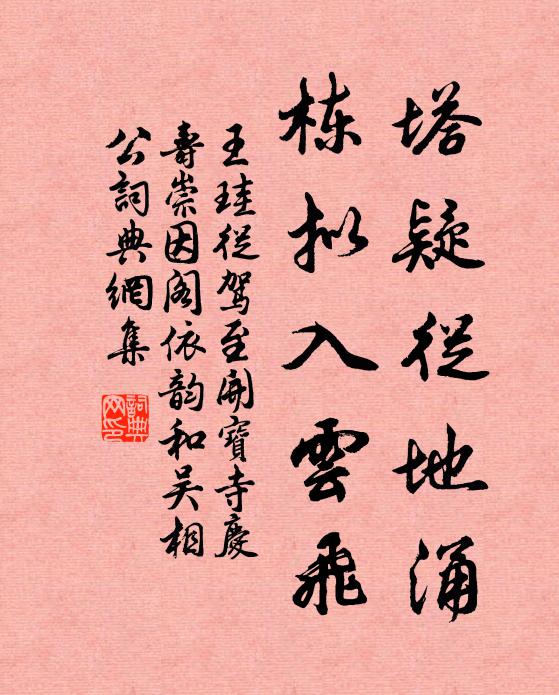 塔疑從地涌
棟拟入雲飛
王珪從駕至開寶寺慶
壽崇因阁依韵和吴相
公詞典網集
詞典网印